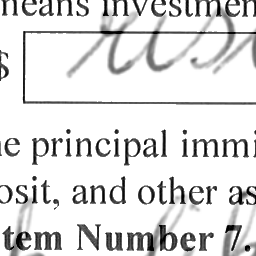 means investmen
$
e principal immi
osit, and other as
tem Number 7.